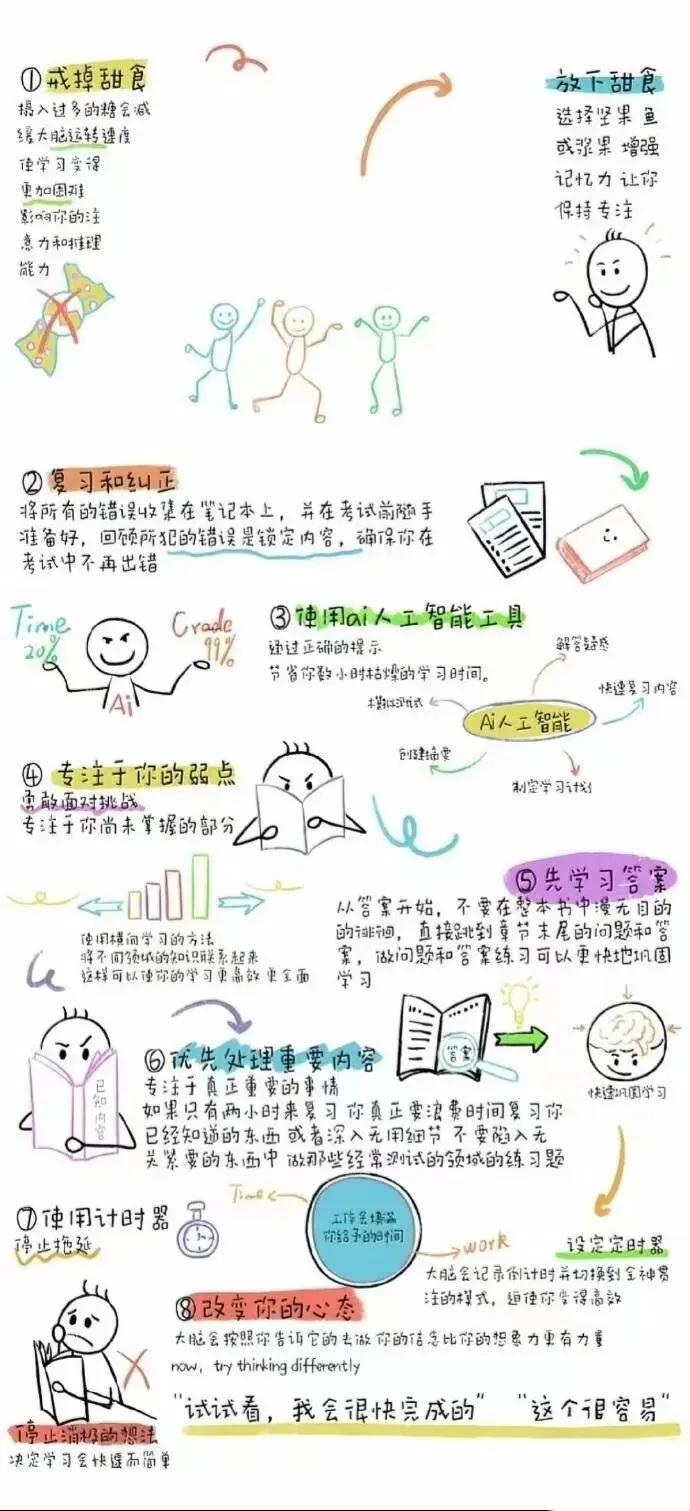 ① 戒掉甜食
摄入过多的糖会减
缓大脑运转速度
使学习变得
更加困难
影响你的注
意力和推理
能力
放下甜食
选择坚果 鱼
或浆果 增强
记忆力 让你
保持专注
② 复习和纠正
将所有的错误收集在笔记本上，并在考试前随手
准备好，回顾所犯的错误是锁定内容，确保你在
考试中不再出错
Time
20%
Grade
99%
Ai
③ 使用ai人工智能工具
通过正确的提示
节省你数小时枯燥的学习时间。
解答疑惑
快速复习内容
模拟测试
Ai人工智能
创建摘要
制定学习计划
④ 专注于你的弱点
勇敢面对挑战
专注于你尚未掌握的部分
使用横向学习的方法
将不同领域的知识联系起来
这样可以使你的学习更高效 更全面
⑤ 先学习答案
从答案开始，不要在整本书中漫无目的
的徘徊，直接跳到章节末尾的问题和答
案，做问题和答案练习可以更快地巩固
学习
答案
快速巩固学习
已知内容
⑥ 优先处理重要内容
专注于真正重要的事情
如果只有两小时来复习 你真正要浪费时间复习你
已经知道的东西 或者深入无用细节 不要陷入无
关紧要的东西中 做那些经常测试的领域的练习题
⑦ 使用计时器
停止拖延
Time
工作会填满
你给予的时间
work
设定定时器
大脑会记录倒计时并切换到全神贯
注的模式，迫使你变得高效
⑧ 改变你的心态
大脑会按照你告诉它的去做 你的信念比你的想象力更有力量
now，try thinking differently
"试试看，我会很快完成的" "这个很容易"
停止消极的想法
决定学习会快速而简单